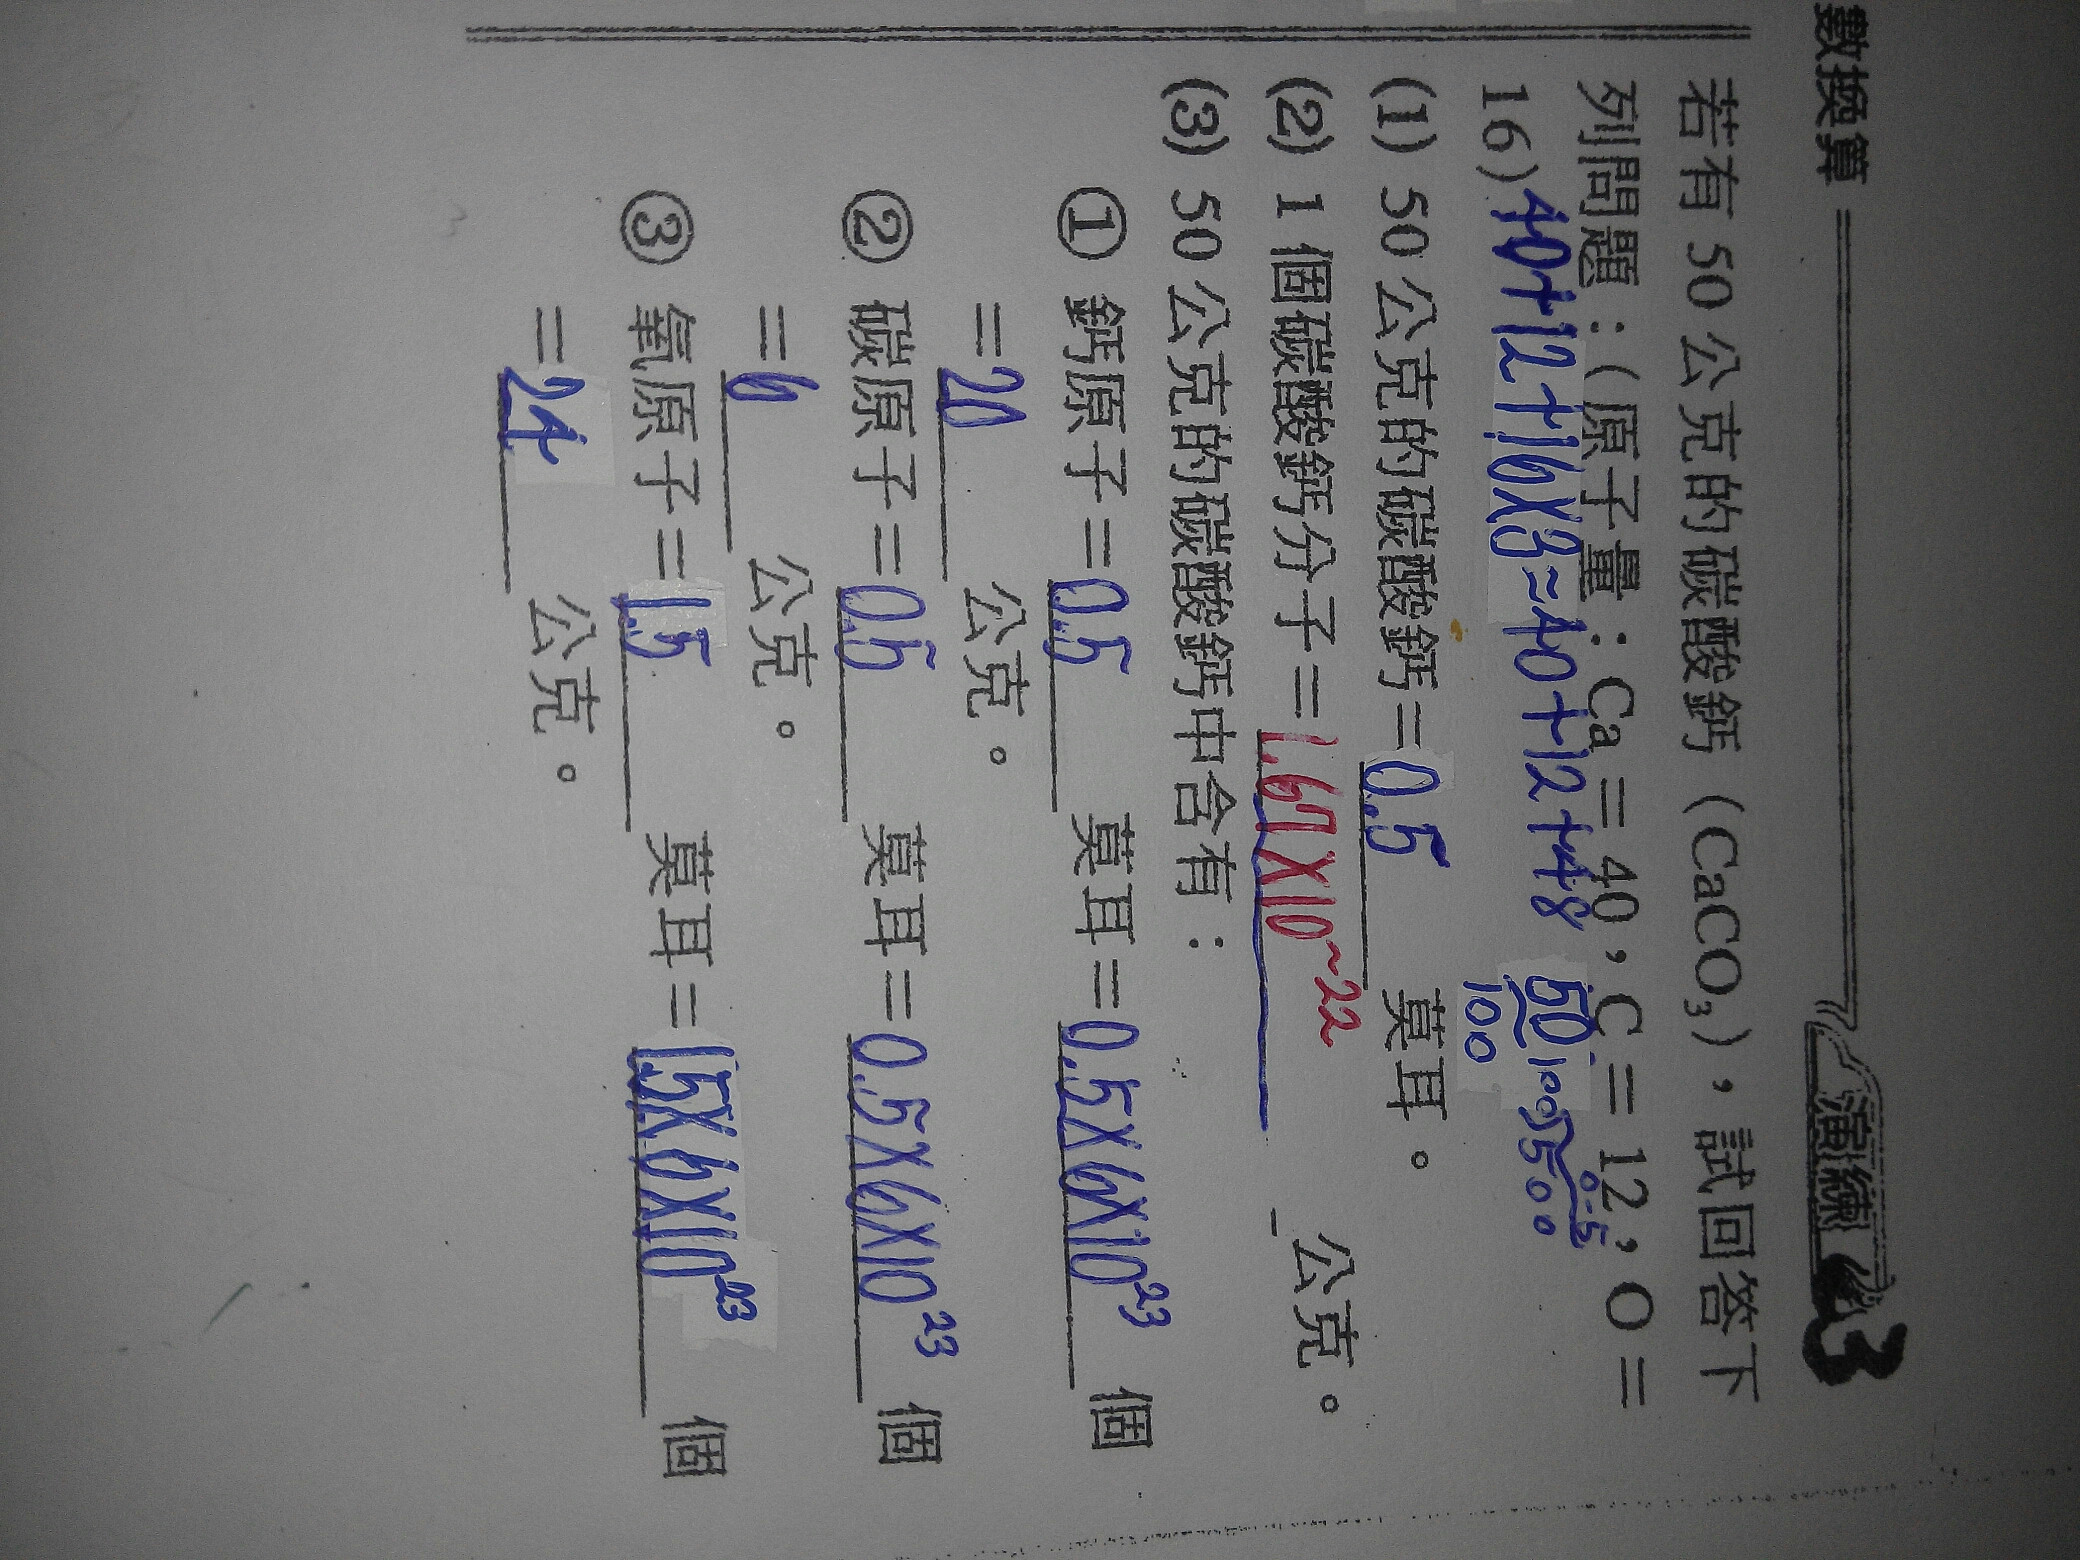 數換算 演練 3
若有 50 公克的碳酸鈣（CaCO₃），試回答下
列問題：（原子量：Ca＝40，C＝12，O＝
16）40+12+16×3=40+12+48 50/100 100 0.5 500
(1) 50 公克的碳酸鈣＝0.5 莫耳。
(2) 1 個碳酸鈣分子＝1.67×10⁻²² 公克。
(3) 50 公克的碳酸鈣中含有：
① 鈣原子＝0.5 莫耳＝0.5×6×10²³ 個
＝20 公克。
② 碳原子＝0.5 莫耳＝0.5×6×10²³ 個
＝6 公克。
③ 氧原子＝1.5 莫耳＝1.5×6×10²³ 個
＝24 公克。